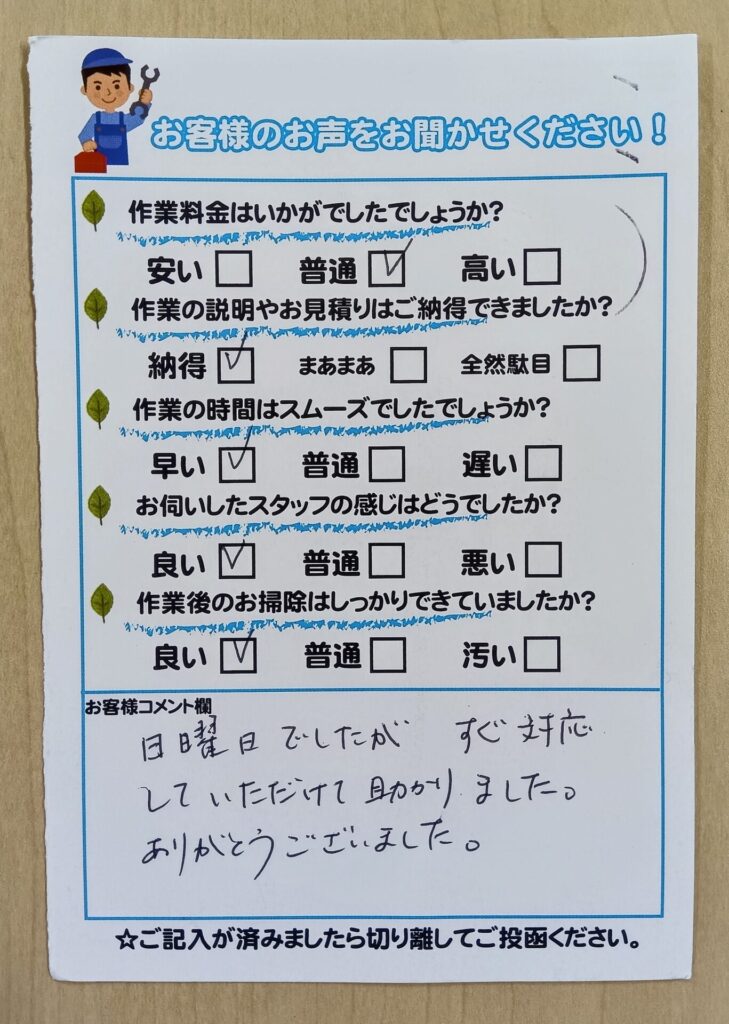 お客様のお声をお聞かせください!
作業料金はいかがでしたでしょうか?
安い □ 普通 ☑ 高い □
作業の説明やお見積りはご納得できましたか?
納得 ☑ まあまあ □ 全然駄目 □
作業の時間はスムーズでしたでしょうか?
早い ☑ 普通 □ 遅い □
お伺いしたスタッフの感じはどうでしたか?
良い ☑ 普通 □ 悪い □
作業後のお掃除はしっかりできていましたか?
良い ☑ 普通 □ 汚い □
お客様コメント欄
日曜日でしたが すぐ対応
していただけて助かりました。
ありがとうございました。
☆ご記入が済みましたら切り離してご投函ください。